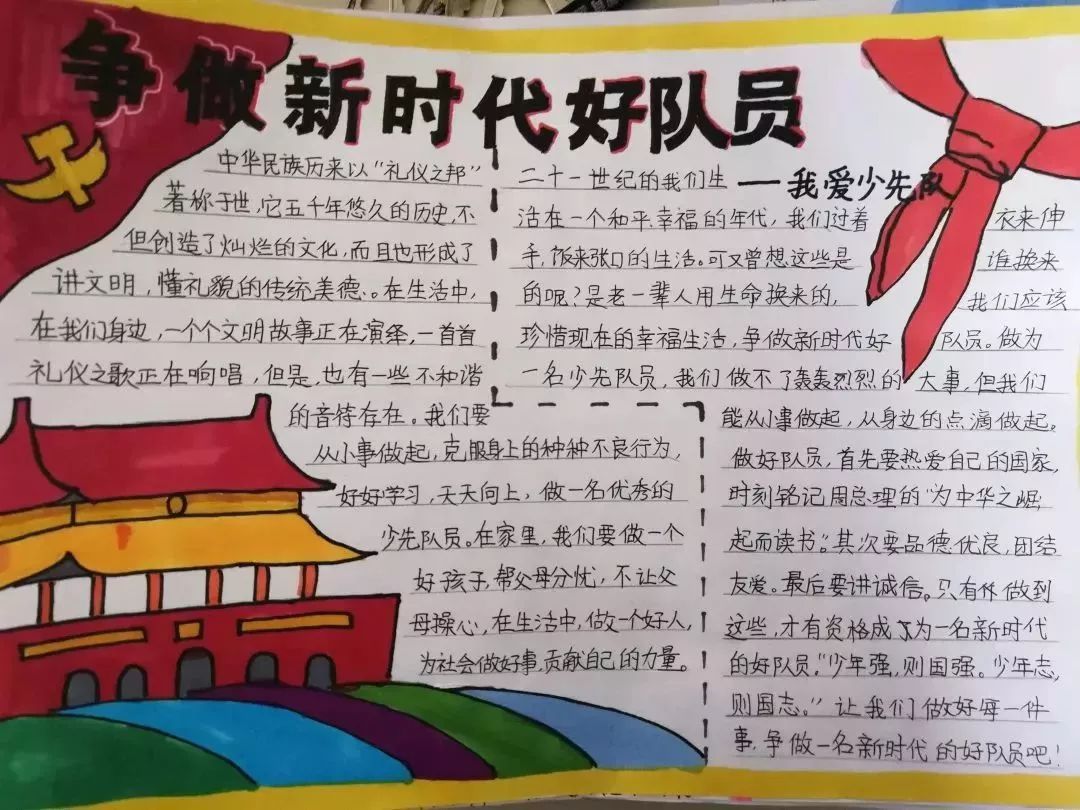 争做新时代好队员
——我爱少先队
中华民族历来以“礼仪之邦”
著称于世,它五千年悠久的历史,不
但创造了灿烂的文化,而且也形成了
讲文明,懂礼貌的传统美德。在生活中,
在我们身边,一个个文明故事正在演绎,一首首
礼仪之歌正在响唱,但是,也有一些不和谐
的音符存在。我们要
从小事做起,克服身上的种种不良行为,
好好学习,天天向上,做一名优秀的
少先队员。在家里,我们要做一个
好孩子,帮父母分忧,不让父
母操心,在生活中,做一个好人,
为社会做好事,贡献自己的力量。
二十一世纪的我们生
活在一个和平幸福的年代,我们过着衣来伸
手,饭来张口的生活。可又曾想这些是谁换来
的呢?是老一辈人用生命换来的,我们应该
珍惜现在的幸福生活,争做新时代好队员。做为
一名少先队员,我们做不了轰轰烈烈的大事,但我们
能从小事做起,从身边的点滴做起。
做好队员,首先要热爱自己的国家,
时刻铭记周总理的“为中华之崛
起而读书”。其次要品德优良,团结
友爱。最后要讲诚信。只有做到
这些,才有资格成为一名新时代
的好队员。“少年强,则国强。少年志,
则国志。”让我们做好每一件
事,争做一名新时代的好队员吧!